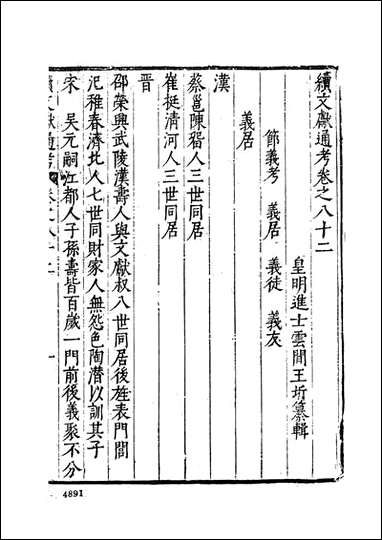 續文獻通考卷之八十二
皇明進士雲間王圻纂輯
節義考 義居 義徒 義友
義居
漢
蔡邕陳留人三世同居
崔挺清河人三世同居
晋
邵榮興武陵漢壽人與文獻叔八世同居後旌表門閭
氾稚春濟北人七世同財家人無怨色陶潜以訓其子
宋 吴元嗣江都人子孫壽皆百歲一門前後義聚不分
4891